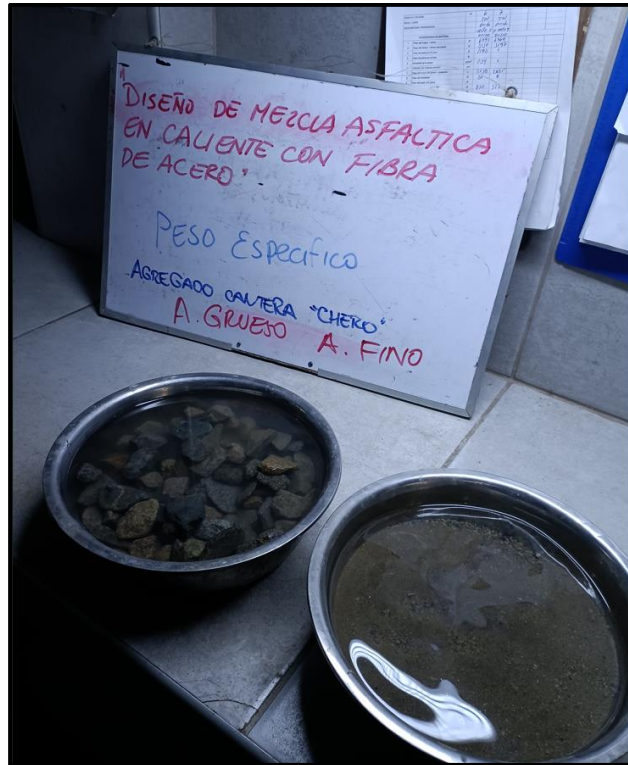 "DISEÑO DE MEZCLA ASFALTICA
EN CALIENTE CON FIBRA
DE ACERO".
PESO ESPECIFICO
AGREGADO CANTERA "CHERO"
A. GRUESO A. FINO